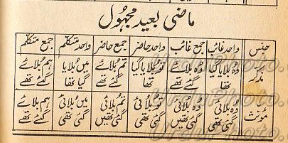 ماضی بعید مجہول
جنس واحد غائب جمع غائب واحد حاضر جمع حاضر واحد متکلم جمع متکلم
مذکر وہ بلایا گیا تھا وہ بلائے گئے تھے تو بلایا گیا تھا تم بلائے گئے تھے میں بلایا گیا تھا ہم بلائے گئے تھے
مؤنث وہ بلائی گئی تھی وہ بلائی گئی تھیں تو بلائی گئی تھی تم بلائی گئی تھیں میں بلائی گئی تھی ہم بلائے گئے تھے